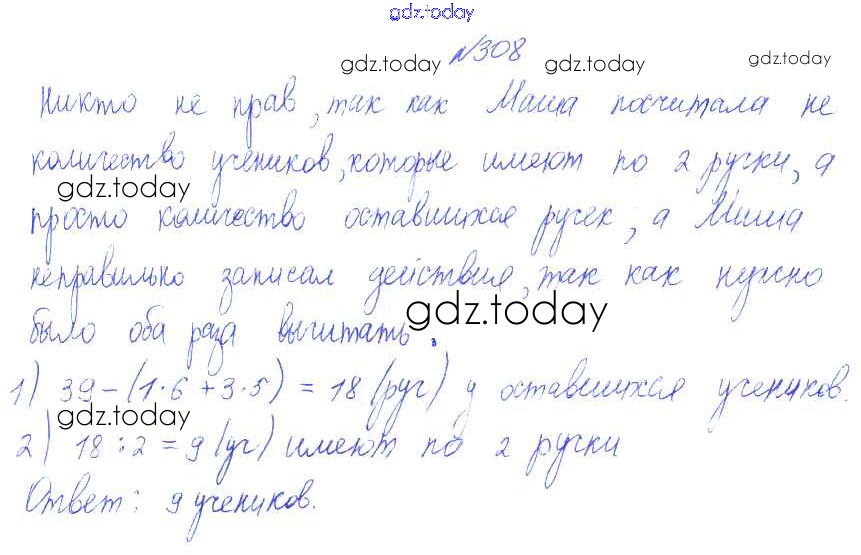 gdz.today
№308
gdz.today gdz.today gdz.today
Никто не прав, так как Маша посчитала не
количество учеников, которые имеют по 2 ручки, а
gdz.today
просто количество оставшихся ручек, а Миша
неправильно записал действия, так как нужно
gdz.today
было оба раза вычитать.
1) 39-(1·6+3·5)=18 (руч) у оставшихся учеников.
gdz.today
2) 18:2=9 (уч) имеют по 2 ручки
Ответ: 9 учеников.